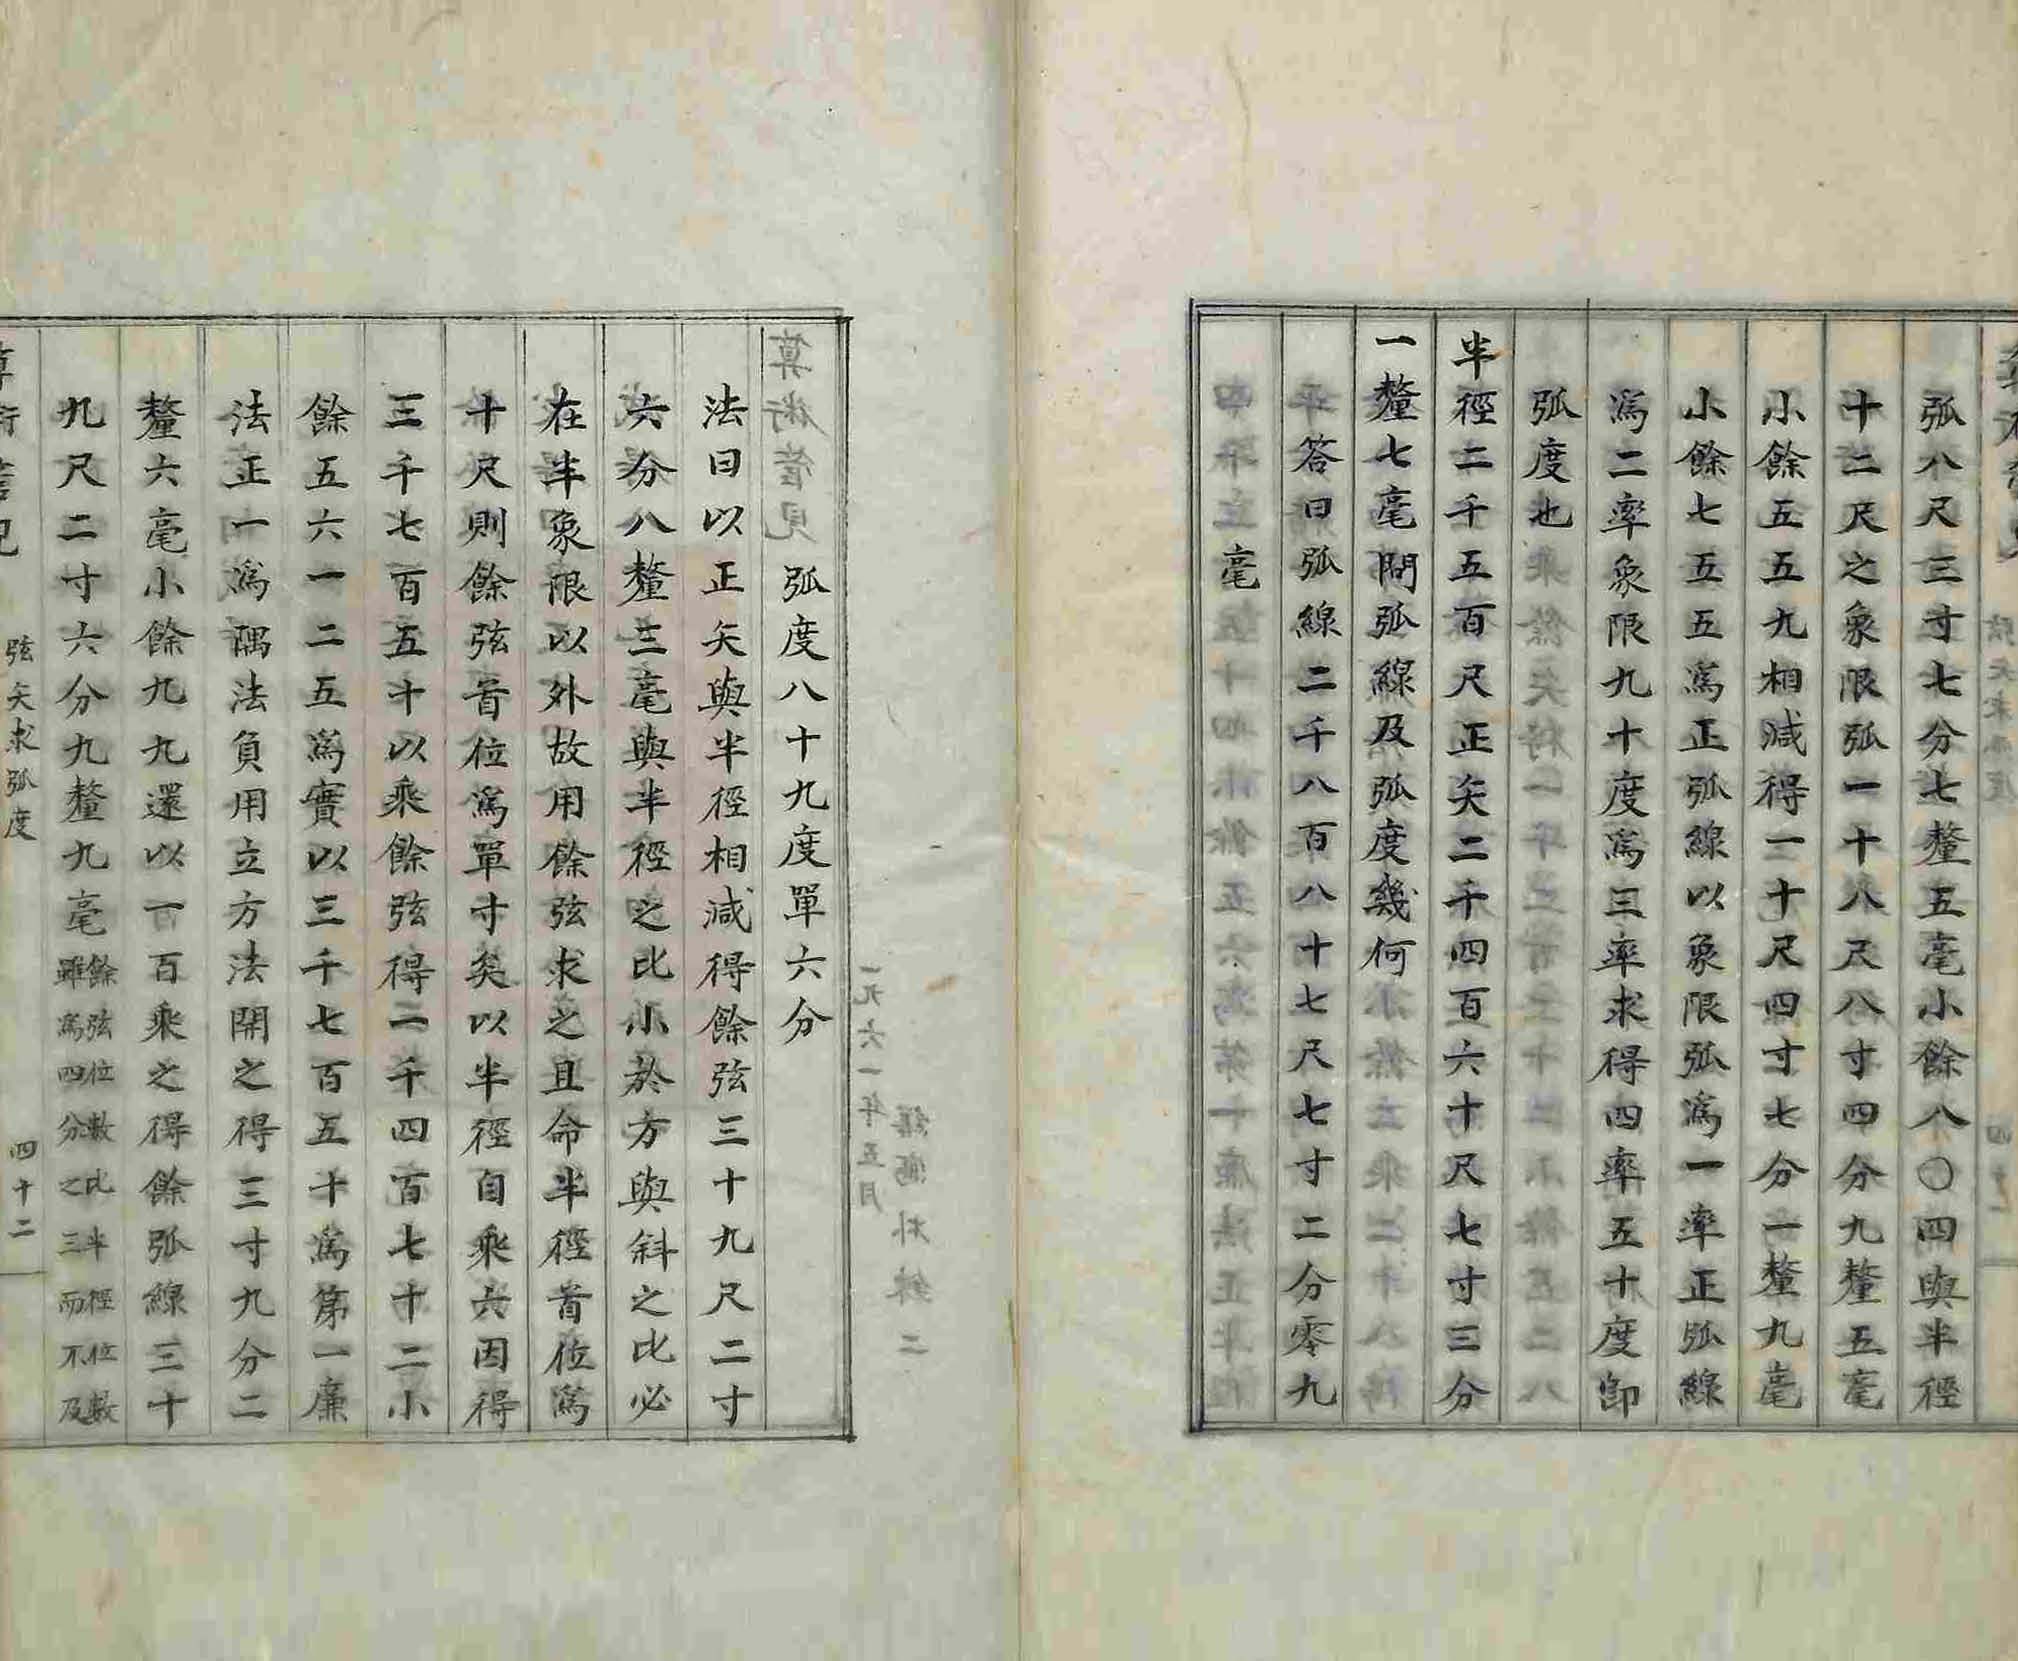 弧八尺三寸七分七釐五毫小餘八〇四與半徑
十二尺之象限弧一十八尺八寸四分九釐五毫
小餘五五九相減得一十尺四寸七分一釐九毫
小餘七五五爲正弧線以象限弧爲一率正弧線
爲二率象限九十度爲三率求得四率五十度卽
弧度也
半徑二千五百尺正矢二千四百六十尺七寸三分
一釐七毫問弧線及弧度幾何
答曰弧線二千八百八十七尺七寸二分零九
毫
弧度八十九度單六分
法曰以正矢與半徑相減得餘弦三十九尺二寸
六分八釐三毫與半徑之比小於方與斜之比必
在半象限以外故用餘弦求之且命半徑首位爲
十尺則餘弦首位爲單寸矣以半徑自乘六因得
三千七百五十以乘餘弦得二千四百七十二小
餘五六一二五爲實以三千七百五十爲第一廉
法正一爲隅法負用立方法開之得三寸九分二
釐六毫小餘九九九還以一百乘之得餘弧線三十
九尺二寸六分九釐九毫餘弦位數比半徑位數
雖爲四分之三而不及
弦矢求弧度
四十二